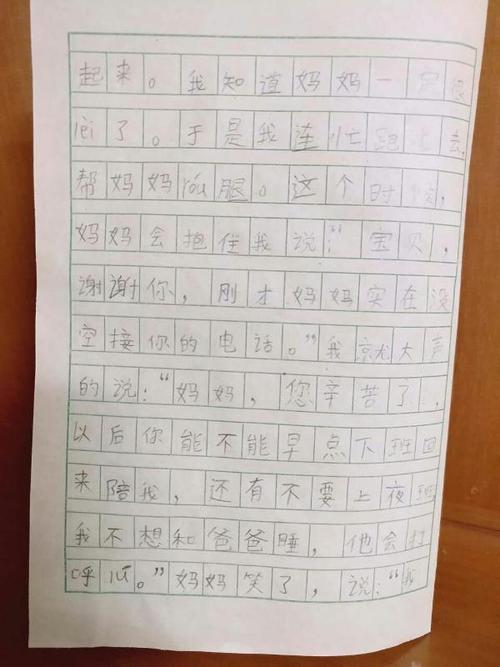 起来。我知道妈妈一定很
lèi了。于是我连忙跑过去,
帮妈妈róu腿。这个时候,
妈妈会抱住我说:“宝贝,
谢谢你,刚才妈妈实在没
空接你的电话。”我就大声
的说:“妈妈,您辛苦了,
以后你能不能早点下班回
来陪我,还有不要上夜班
我不想和爸爸睡,他会打
呼lū。”妈妈笑了,说:“我